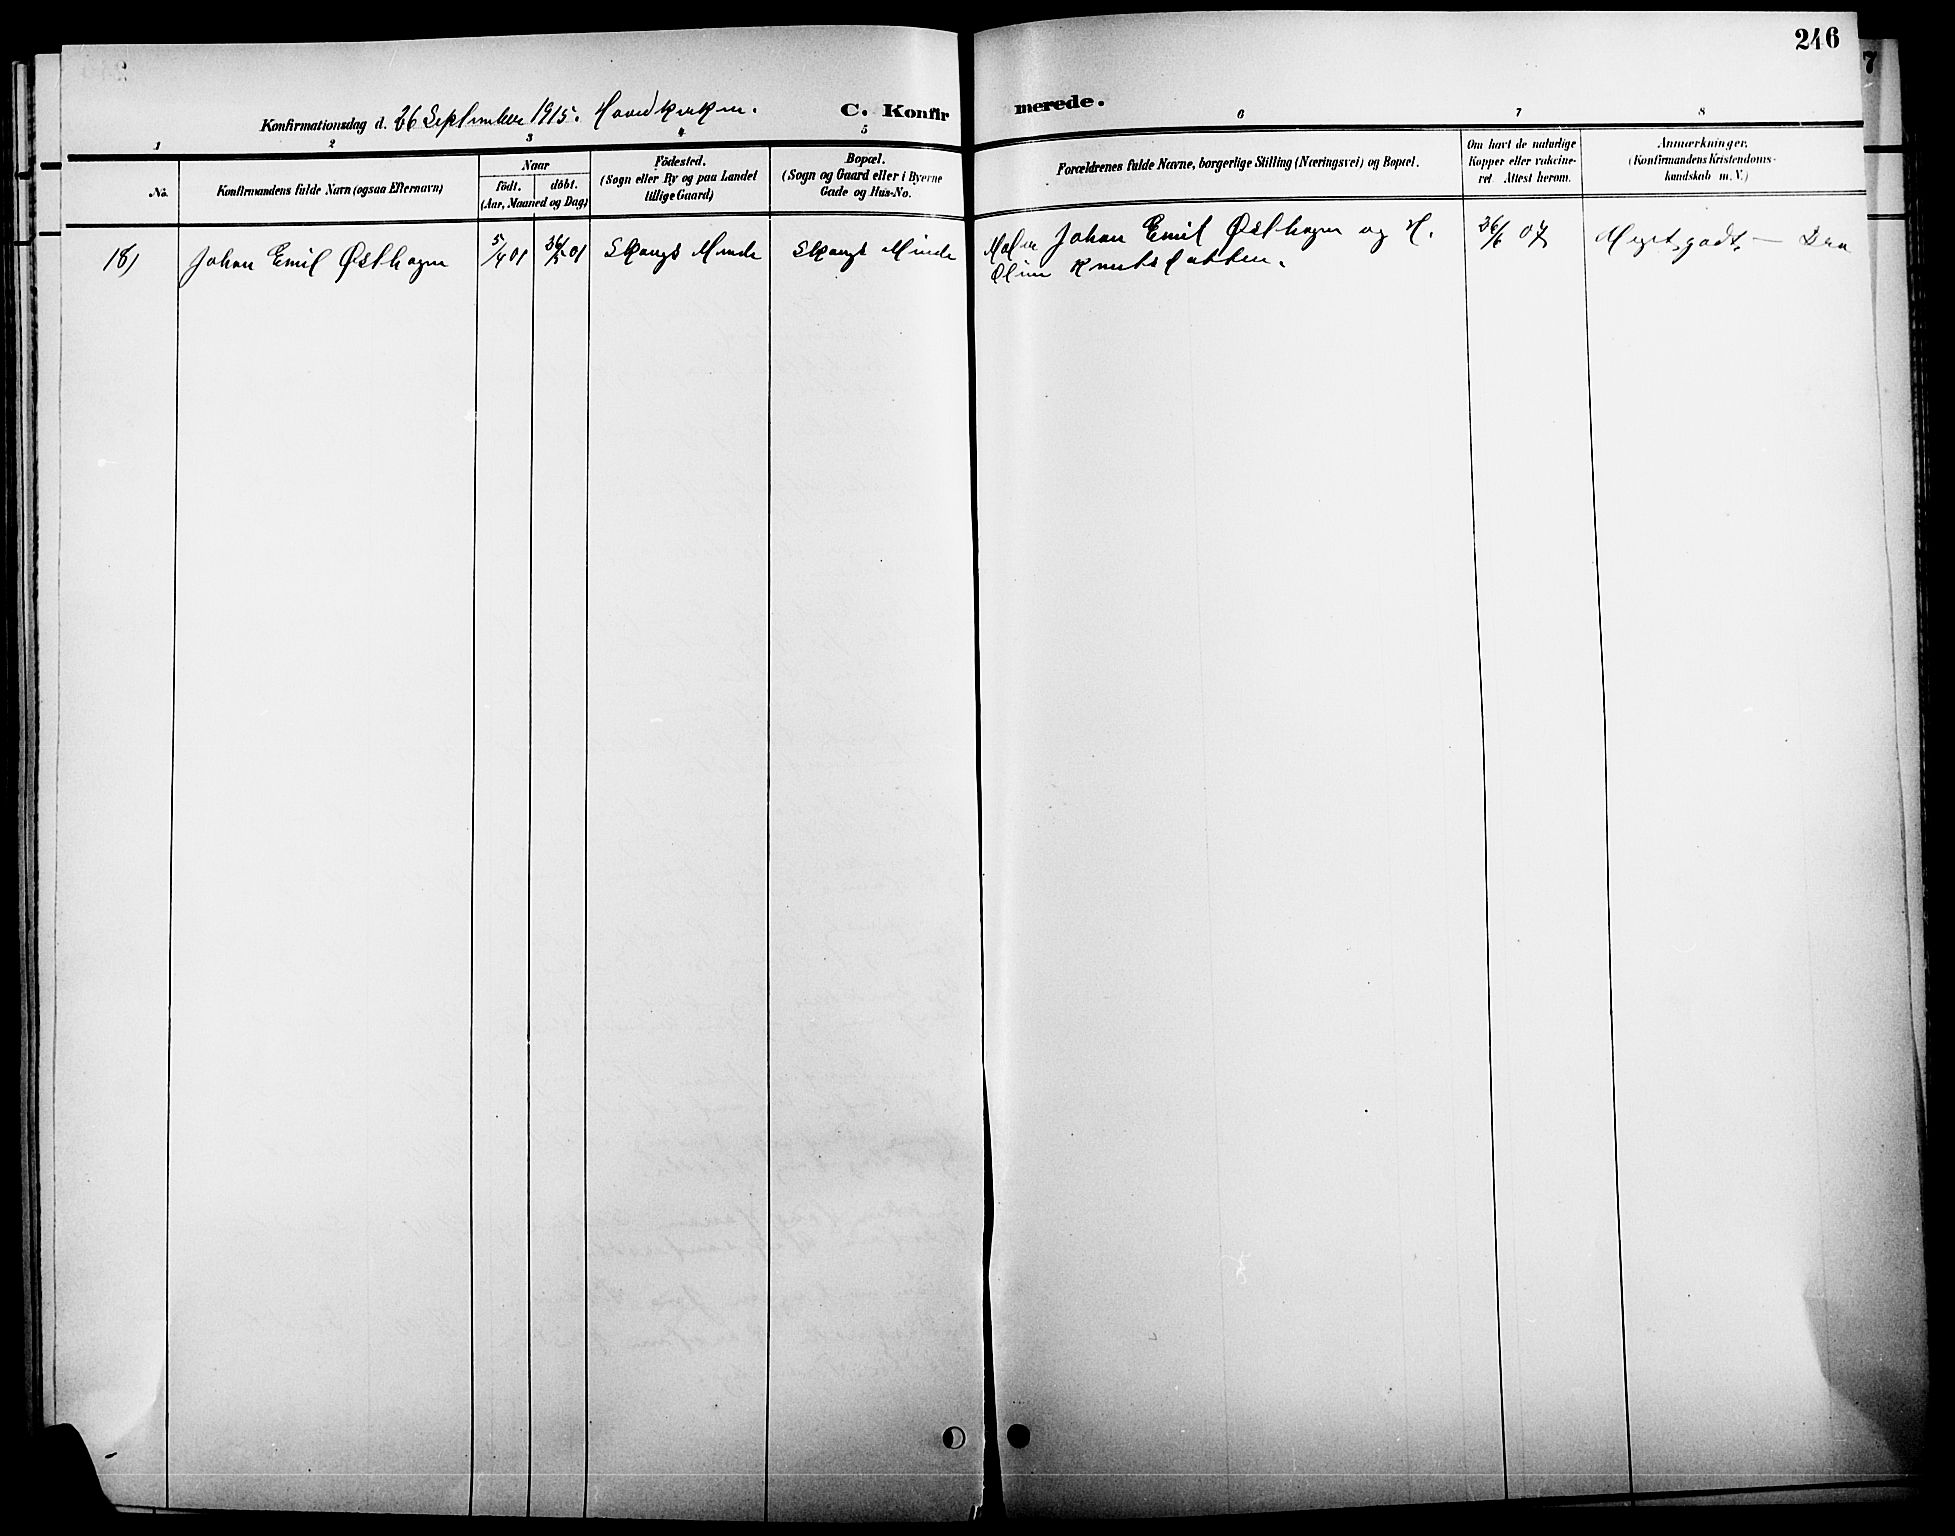 246
7
Konfirmationsdag d. 26 September 1915. Hovedkirken. C. Konfirmerede.
1 2 3 4 5 6 7 8
No.
Konfirmandens fulde Navn (ogsaa Efternavn)
Naar
födt. döbt.
(Aar, Maaned og Dag)
Födested.
(Sogn eller By og paa Landet
tillige Gaard)
Bopæl.
(Sogn og Gaard eller i Byerne
Gade og Hus-No.
Forældrenes fulde Navne, borgerlige Stilling (Næringsvei) og Bopæl.
Om havt de naturlige
Kopper eller vakcine-
ret. Attest herom.
Anmærkninger.
(Konfirmandens Kristendoms-
kundskab m. V.)
18) Johan Emil Østhagen 5/4 01 26/5 01 Skaugs Minde Skaugs Minde Maler Johan Emil Østhagen og H. 26/6 07 Meget godt. — Bra
Oline Knutsløkken.